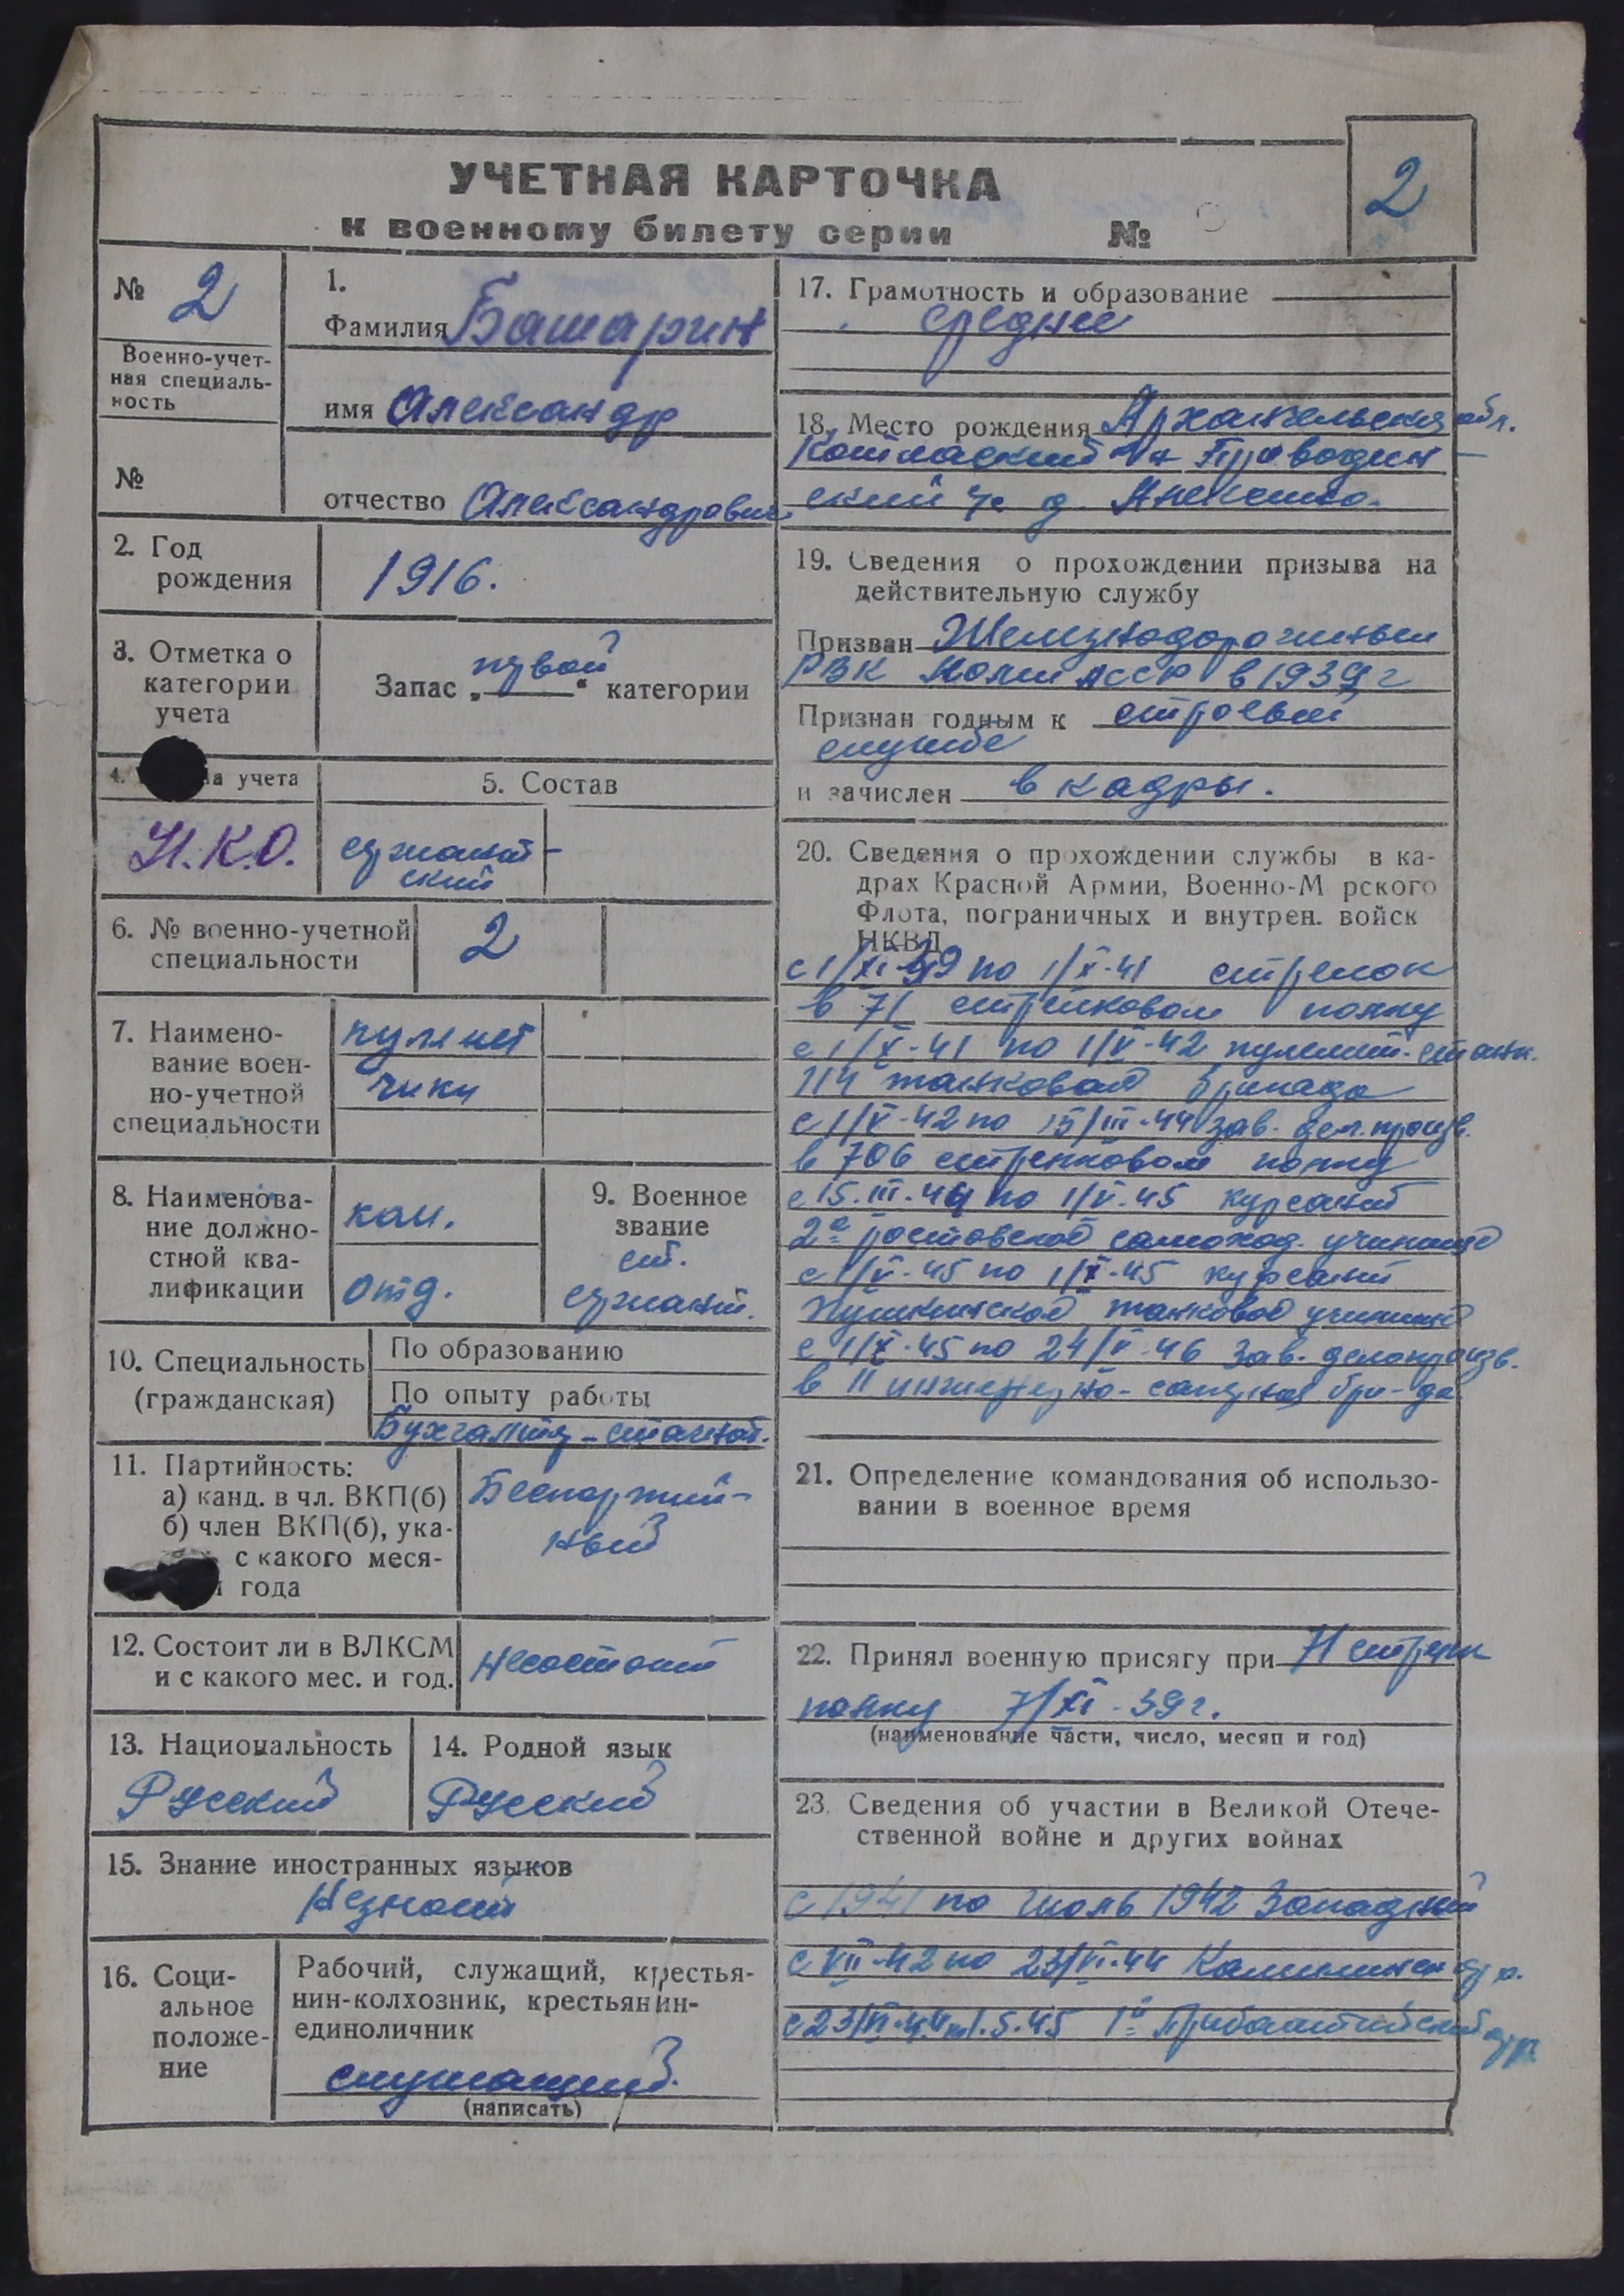 УЧЕТНАЯ КАРТОЧКА
к военному билету серии №
2
№ 2
Военно-учет-
ная специаль-
ность
№
1.
Фамилия Башарин
имя Александр
отчество Александрович
2. Год
рождения
1916.
3. Отметка о
категории
учета
Запас „первой“ категории
4. а учета
Н.К.О.
5. Состав
сержант-
ский
6. № военно-учетной
специальности
2
7. Наимено-
вание воен-
но-учетной
специальности
пулемет
чики
8. Наименова-
ние должно-
стной ква-
лификации
ком.
отд.
9. Военное
звание
ст.
сержант.
10. Специальность
(гражданская)
По образованию
По опыту работы
Бухгалтер-
11. Партийность:
а) канд. в чл. ВКП(б)
б) член ВКП(б), ука-
с какого меся-
года
Беспартий-
ный
12. Состоит ли в ВЛКСМ
и с какого мес. и год.
Несостоит
13. Национальность
Русский
14. Родной язык
Русский
15. Знание иностранных языков
Незнает
16. Соци-
альное
положе-
ние
Рабочий, служащий, крестья-
нин-колхозник, крестьянин-
единоличник
служащий.
(написать)
17. Грамотность и образование
среднее
18. Место рождения Архангельская обл.
Котласский Проводин-
ский с/с д.
19. Сведения о прохождении призыва на
действительную службу
Призван Железнодорожным
РВК Коми АССР в 1939 г
Признан годным к строевой
службе
и зачислен в кадры.
20. Сведения о прохождении службы в ка-
драх Красной Армии, Военно-М рского
Флота, пограничных и внутрен. войск
НКВД
с 1/XI-39 по 1/X-41 стрелок
в 71 стрелковом полку
с 1/X-41 по 1/V-42 пулемет. станк.
114 танковая бригада
с 1/V-42 по 15/III-44 зав. дел. произв.
в 706 стрелковом полку
с 15.III.44 по 1/V.45 курсант
2е ростовское самоход. училище
с 1/V-45 по 1/X-45 курсант
Пушкинское танковое училище
с 1/X-45 по 24/V-46 зав. делопроизв.
в 11 инженерно-саперная бри-да
21. Определение командования об использо-
вании в военное время
22. Принял военную присягу при 71 стрелк
полку 7/XI-39 г.
(наименование части, число, месяц и год)
23. Сведения об участии в Великой Отече-
ственной войне и других войнах
с 1941 по июль 1942 Западный
с VII-42 по 23/VI-44 Калининск фр.
с 23/VI-44 по 1.5.45 1й Прибалтийский фр.